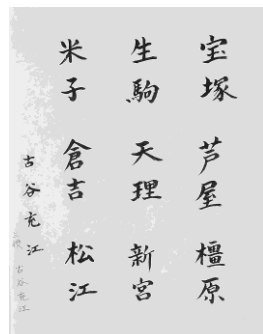 宝塚 芦屋 橿原
生駒 天理 新宮
米子 倉吉 松江
古谷充江
三段
古谷充江